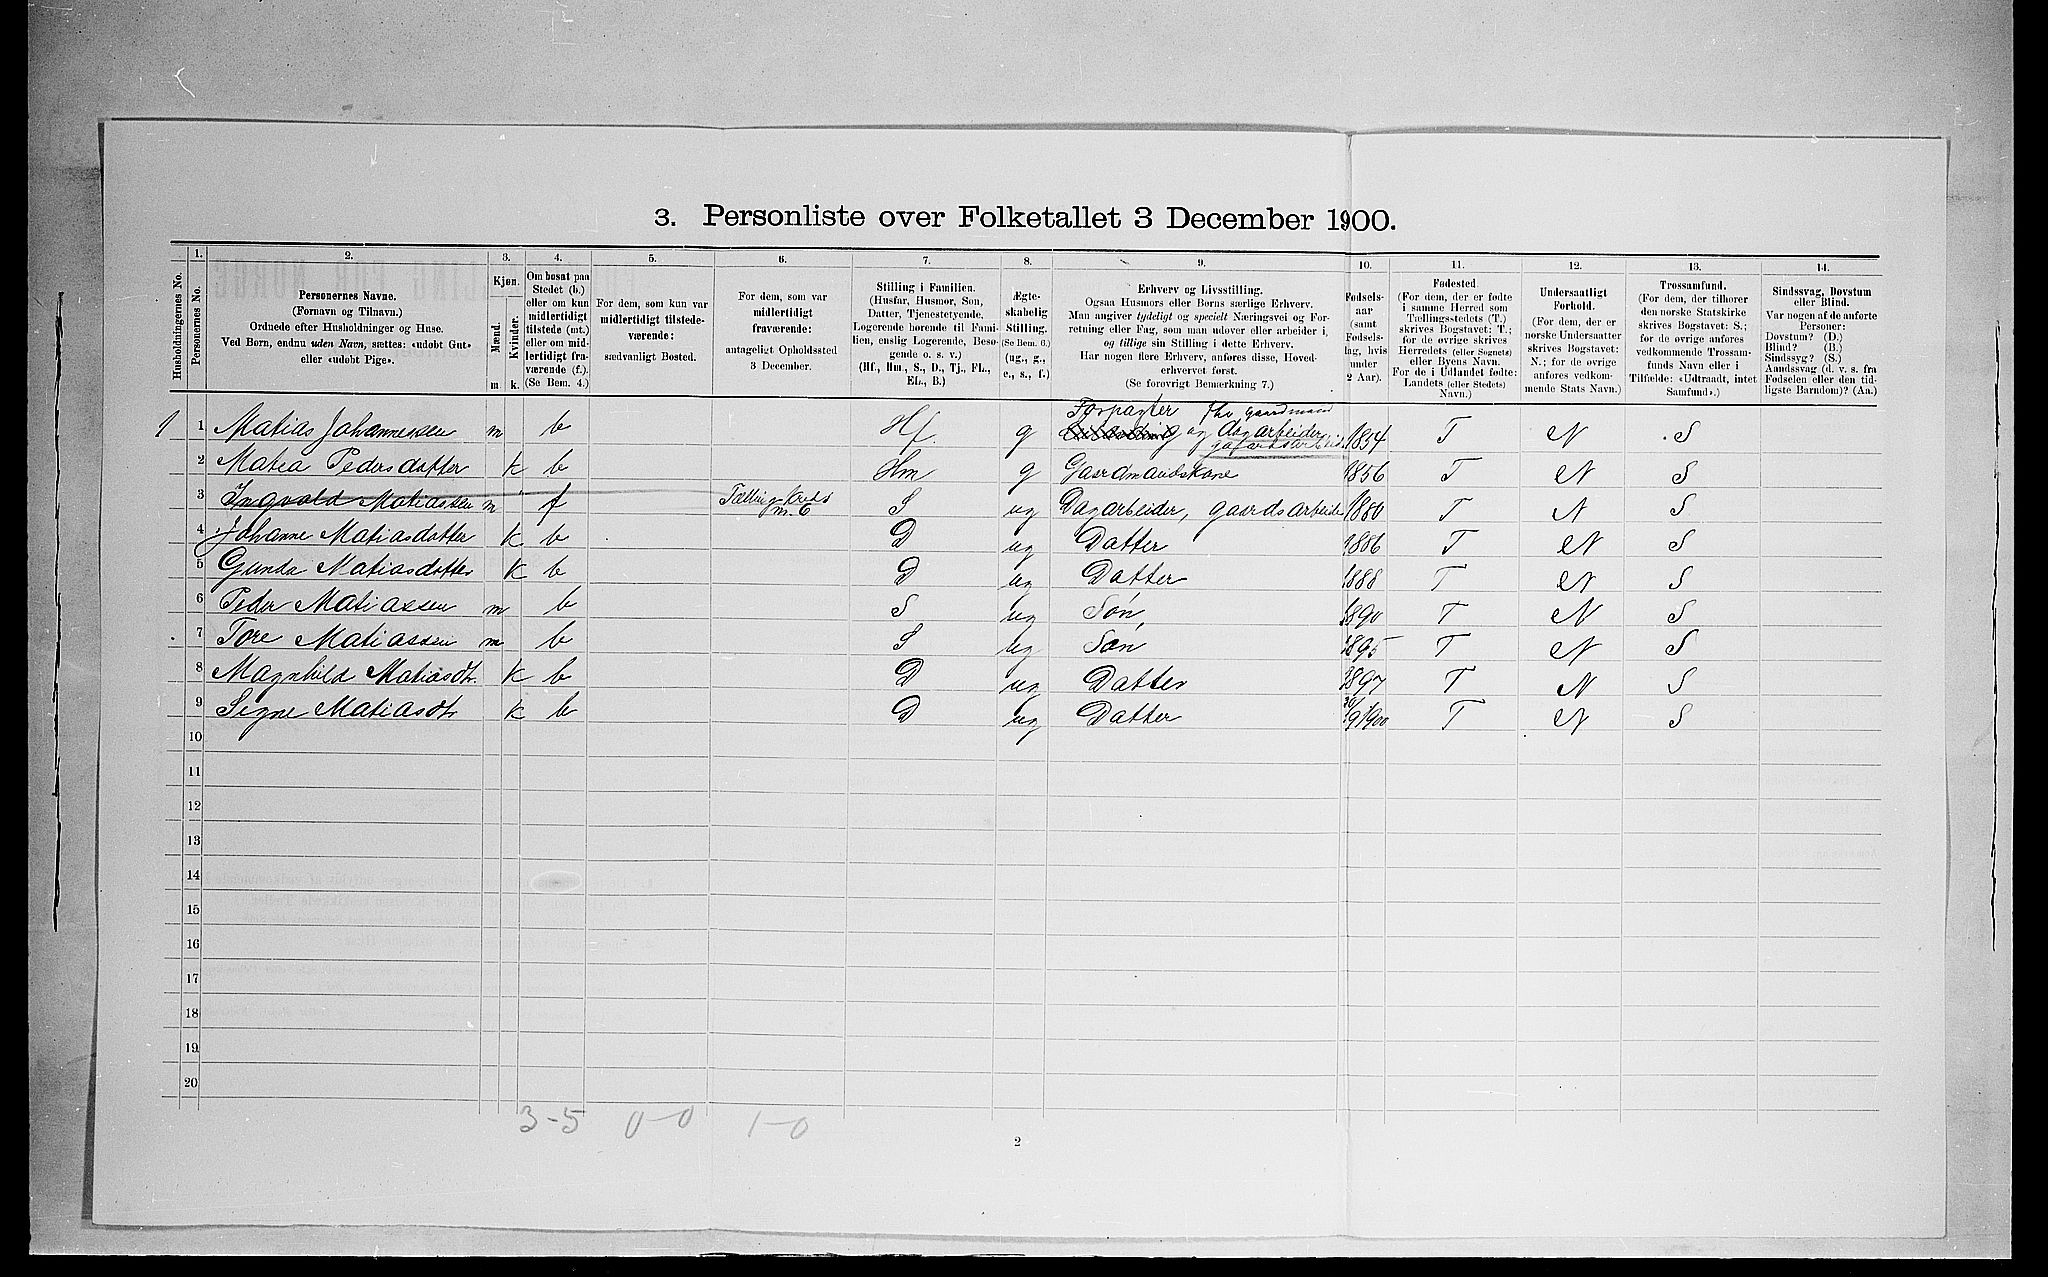 3. Personliste over Folketallet 3 December 1900.
Husholdningernes No.
1.
Personernes No.
2.
Personernes Navne.
(Fornavn og Tilnavn.)
Ordnede efter Husholdninger og Huse.
Ved Børn, endnu uden Navn, sættes: «udøbt Gut»
eller «udøbt Pige».
3.
Kjøn.
Mænd.
Kvinder.
m. k.
4.
Om bosat paa
Stedet (b.)
eller om kun
midlertidigt
tilstede (mt.)
eller om mid-
lertidigt fra-
værende (f.).
(Se Bem. 4.)
5.
For dem, som kun var
midlertidigt tilstede-
værende:
sædvanligt Bosted.
6.
For dem, som var
midlertidigt
fraværende:
antageligt Opholdssted
3 December.
7.
Stilling i Familien.
(Husfar, Husmor, Søn,
Datter, Tjenestetyende,
Logerende hørende til Fami-
lien, enslig Logerende, Besø-
gende o. s. v.)
(Hf., Hm., S., D., Tj., FL.,
EL., B.)
8.
Ægte-
skabelig
Stilling.
(Se Bem. 6.)
(ug., g.,
e., s., f.)
9.
Erhverv og Livsstilling.
Ogsaa Husmors eller Børns særlige Erhverv.
Man angiver tydeligt og specielt Næringsvei og For-
retning eller Fag, som man udøver eller arbeider i,
og tillige sin Stilling i dette Erhverv.
Har nogen flere Erhverv, anføres disse, Hoved-
erhvervet først.
(Se forøvrigt Bemærkning 7.)
10.
Fødsels-
aar
(samt
Fødsels-
dag, hvis
under
2 Aar).
11.
Fødested.
(For dem, der er fødte
i samme Herred som
Tællingsstedets (T.)
skrives Bogstavet: T.;
for de øvrige skrives
Herredets (eller Sognets)
eller Byens Navn.
For de i Udlandet fødte:
Landets (eller Stedets)
Navn.)
12.
Undersaatligt
Forhold.
(For dem, der er
norske Undersaatter
skrives Bogstavet:
N.; for de øvrige
anføres vedkom-
mende Stats Navn.)
13.
Trossamfund.
(For dem, der tilhører
den norske Statskirke
skrives Bogstavet: S.;
for de øvrige anføres
vedkommende Trossam-
funds Navn eller i
Tilfælde: «Udtraadt, intet
Samfund».)
14.
Sindssvag, Døvstum
eller Blind.
Var nogen af de anførte
Personer:
Døvstum? (D.)
Blind? (B.)
Sindssyg? (S.)
Aandssvag (d. v. s. fra
Fødselen eller den tid-
ligste Barndom)? (Aa.)
1 1 Matias Johannessen m b Hf g Forpagter og dagarbeider 1854 T N S
2 Matea Pedersdatter k b Hm g Gaardmandskone 1856 T N S
3 Ingvald Matiassen m f S ug Dagarbeider, gaardsarbeide 1880 T N S
4 Johanne Matiasdatter k b D ug Datter 1886 T N S
5 Gunda Matiasdatter k b D ug Datter 1888 T N S
6 Peder Matiassen m b S ug Søn, 1890 T N S
7 Tore Matiassen m b S ug Søn 1895 T N S
8 Magnhild Matiasdtr. k b D ug Datter 1897 T N S
9 Signe Matiasdtr k b D ug Datter 1900 T N S
10
11
12
13
14
15
16
17
18
19
20
3-5 0-0 1-0
2